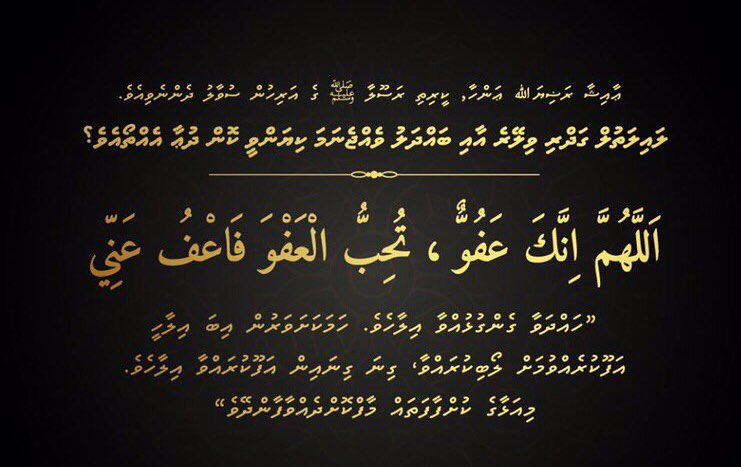 ޢާއިޝާ ރަޟިޔަﷲ ޢަންހާ, ކީރިތި ރަސޫލާ ﷺ ގެ އަރިހުން ސުވާލު ދެންނެވިއެވެ.
ލައިލަތުލް ޤަދްރި ވިލޭރެ އާއި ބައްދަލު ވެއްޖެނަމަ ކިޔަންވީ ކޮން ދުޢާ އެއްތޯއެވެ؟
اَللَّهُمَّ اِنَّكَ عَفُوٌّ ، تُحِبُّ الْعَفْوَ فَاعْفُ عَنِّي
”ހައްދަވާ ގެންގުޅުއްވާ އިލާހެވެ. ހަމަކަށަވަރުން އިބަ އިލާހީ
އަފޫކުރެއްވުމަށް ލޯބިކުރައްވާ، ގިނަ ގިނައިން އަފޫކުރައްވާ އިލާހެވެ.
މިއަޅާގެ ކުށްފާފަތައް މާފްކޮށްދެއްވާފާންދޭވެ“